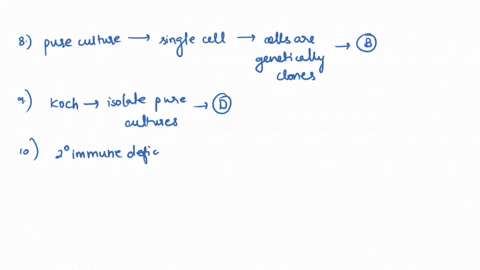 8.) pure culture → single cell → cells are genetically clones → B
9) Koch → isolate pure cultures → D
10) 2° immune defic